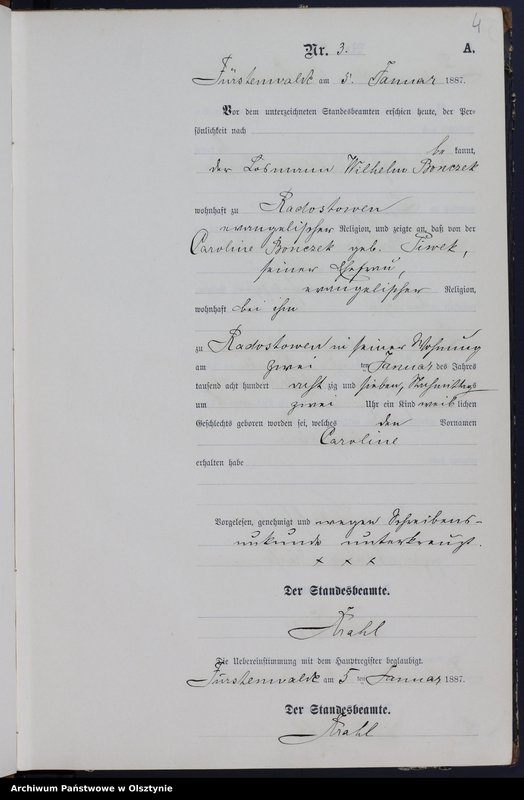 4
Nr. 3. A.
Fürstenwalde am 5t Januar 1887.
Vor dem unterzeichneten Standesbeamten erschien heute, der Per-
sönlichkeit nach
be kannt,
der Losmann Wilhelm Bonczek
wohnhaft zu Radostowen
evangelischer Religion, und zeigte an, daß von der
Caroline Bonczek geb. Piwek,
seiner Ehefrau,
evangelischer Religion,
wohnhaft bei ihm
zu Radostowen in seiner Wohnung
am zwei ten Januar des Jahres
tausend acht hundert acht zig und sieben, Nachmittags
um zwei Uhr ein Kind weib lichen
Geschlechts geboren worden sei, welches den Vornamen
Caroline
erhalten habe
Vorgelesen, genehmigt und wegen Schreibens-
unkunde unterkreuzt.
x x x
Der Standesbeamte.
Krahl
Die Uebereinstimmung mit dem Hauptregister beglaubigt.
Fürstenwalde am 5 ten Januar 1887.
Der Standesbeamte.
Krahl
Archiwum Państwowe w Olsztynie